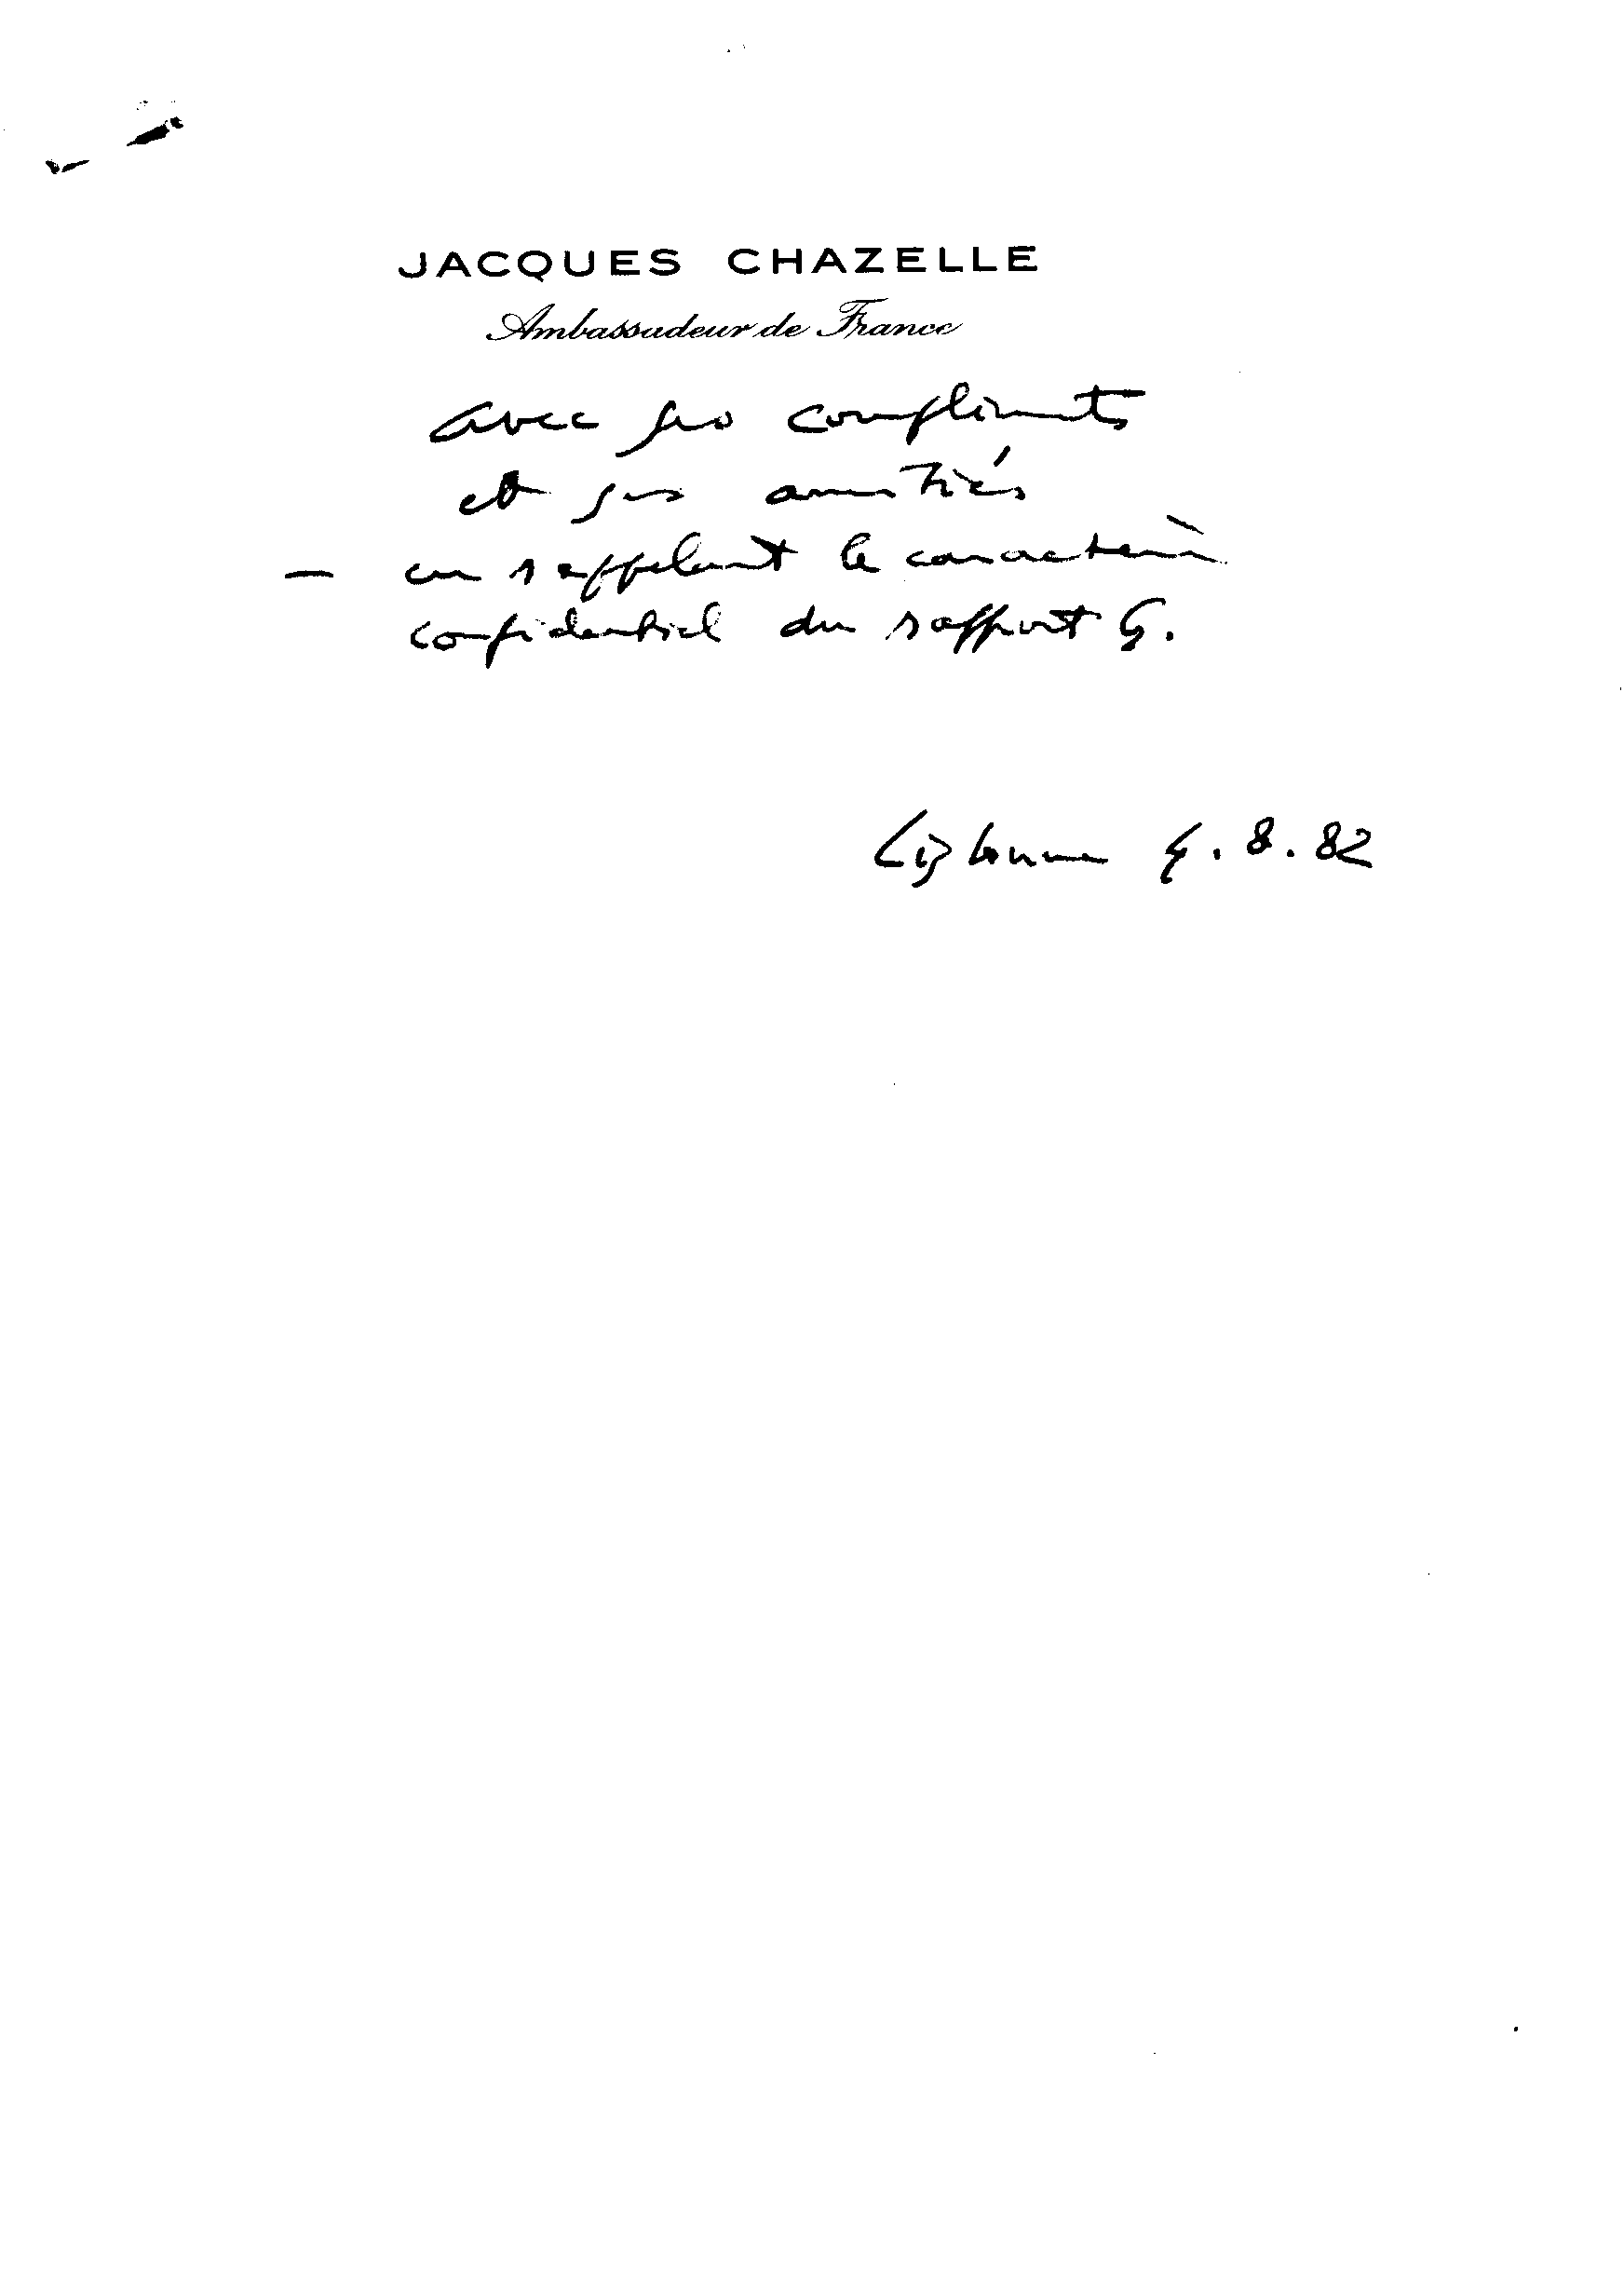 JACQUES CHAZELLE
Ambassadeur de France
avec ses compliments
et ses amitiés
— en rappelant le caractère
confidentiel du rapport G.
Lisbonne 4.8.82